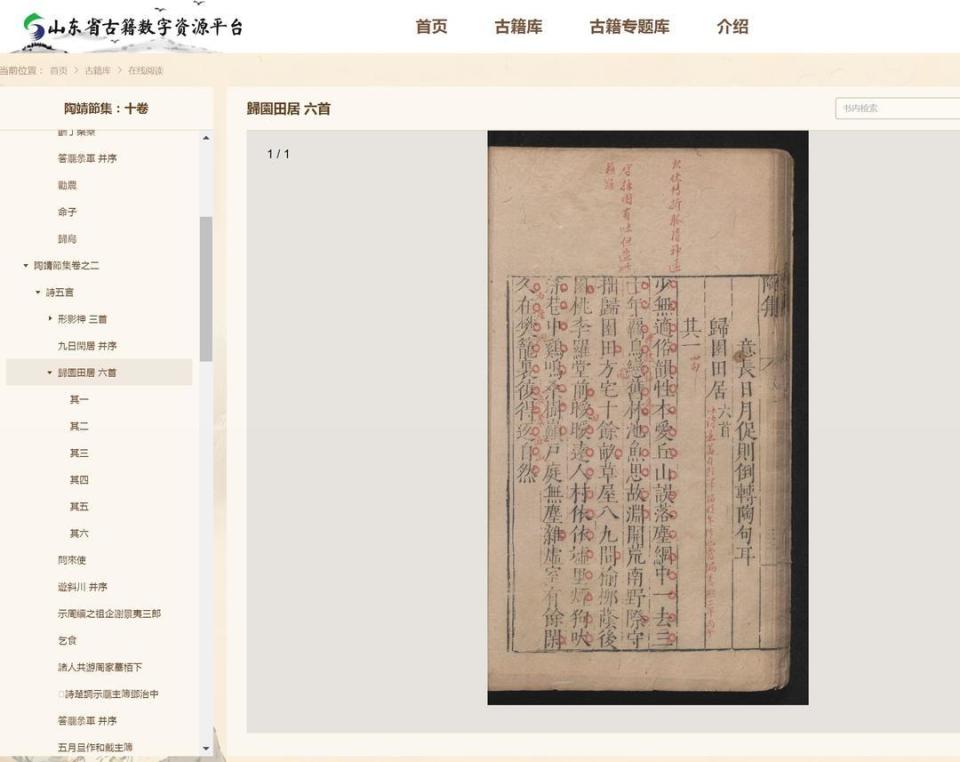 山东省古籍数字资源平台
首页
古籍库
古籍专题库
介绍
当前位置： 首页 > 古籍库 > 在线阅读
陶靖節集：十卷
答龐參軍 并序
勸農
命子
歸鳥
陶靖節集卷之二
詩五言
形影神 三首
九日閑居 并序
歸園田居 六首
其一
其二
其三
其四
其五
其六
問來使
遊斜川 并序
示周續之祖企謝景夷三郎
乞食
諸人共游周家墓栢下
□詩楚調示龐主簿鄧治中
答龐參軍 并序
五月旦作和戴主簿
歸園田居 六首
书内检索
1 / 1
陶集
意長日月促則倒轉陶句耳
歸園田居 六首
其一
少無適俗韻性本愛丘山誤落塵網中一去三
十年羈鳥戀舊林池魚思故淵開荒南野際守
拙歸園田方宅十餘畝草屋八九間榆柳蔭後
園桃李羅堂前曖曖遠人村依依墟里煙狗吠
深巷中鷄鳴桑樹巔戶庭無塵雜虛室有餘閑
久在樊籠裏復得返自然